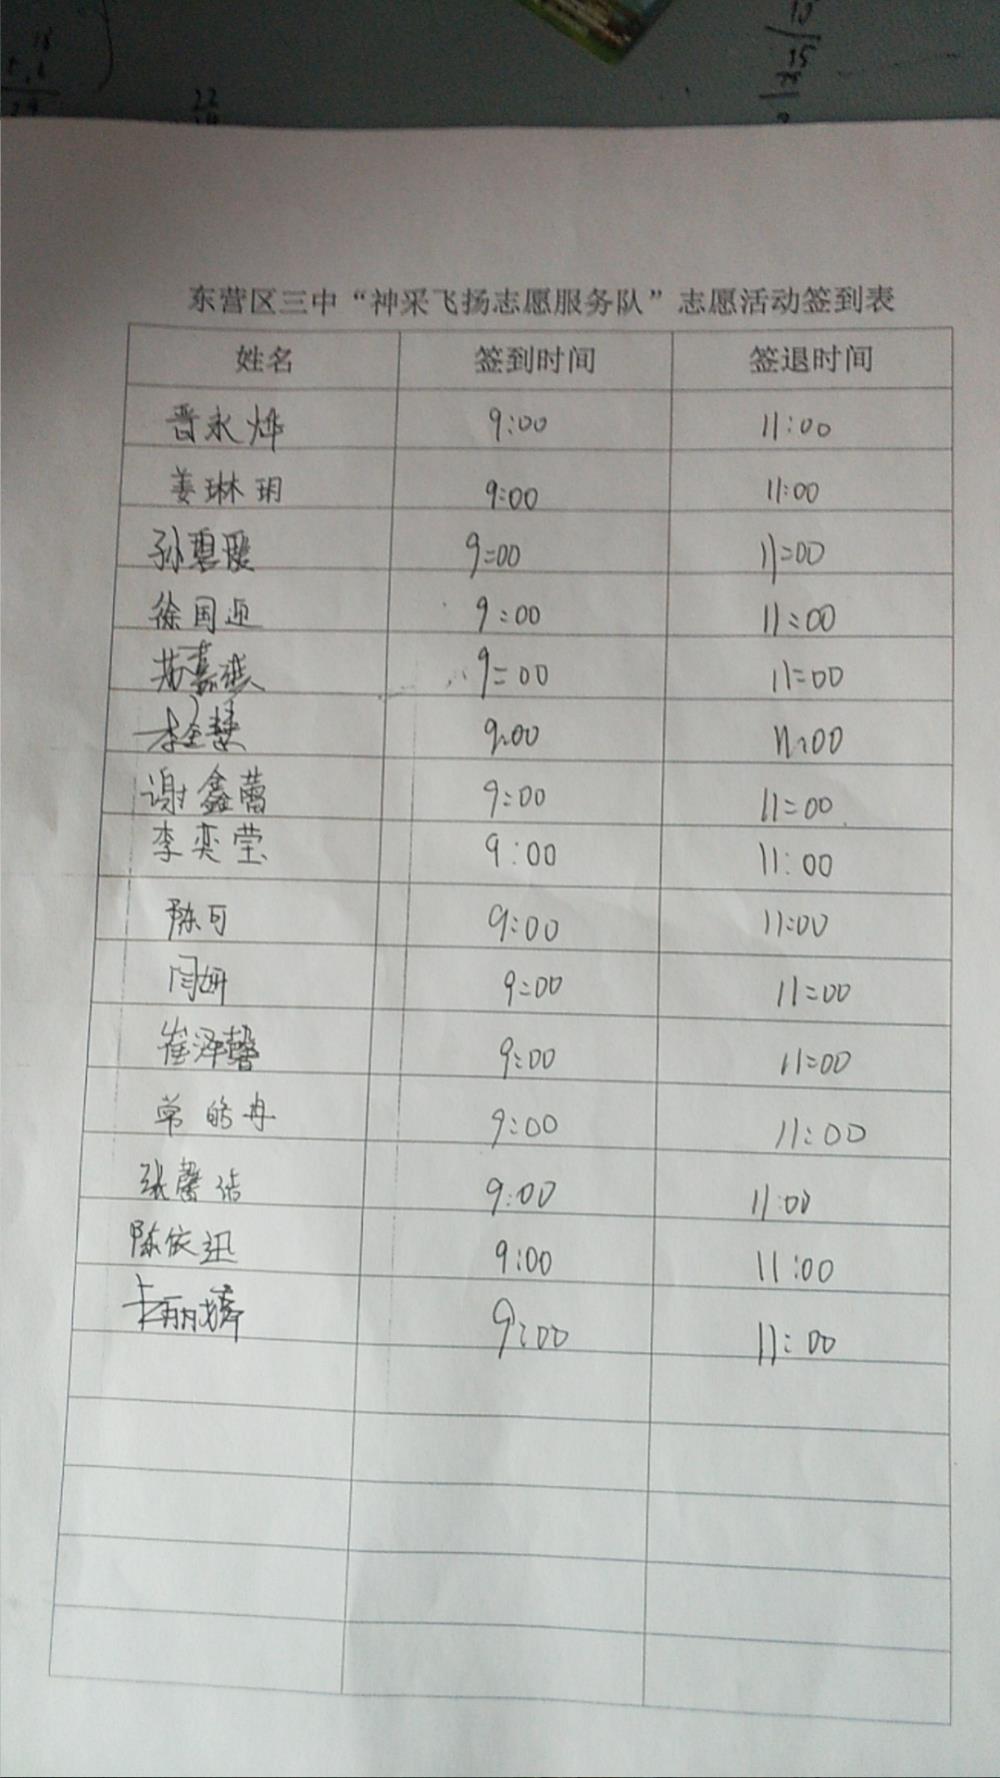 东营区三中“神采飞扬志愿服务队”志愿活动签到表
姓名 签到时间 签退时间
晋永烨 9:00 11:00
姜琳玥 9:00 11:00
孙碧霞 9:00 11:00
徐国迎 9:00 11:00
9:00 11:00
9:00 11:00
谢鑫蕾 9:00 11:00
李奕莹 9:00 11:00
陈可 9:00 11:00
闫妍 9:00 11:00
崔泽馨 9:00 11:00
9:00 11:00
张馨洁 9:00 11:00
陈依迅 9:00 11:00
9:00 11:00